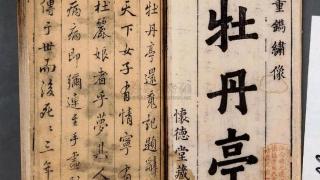 重鐫繡像
牡丹亭
懷德堂藏
牡丹亭還魂記題辭
天下女子有情寧有
杜麗娘者乎夢其人
病病即彌連至手畫
傳于世而後死〻三年